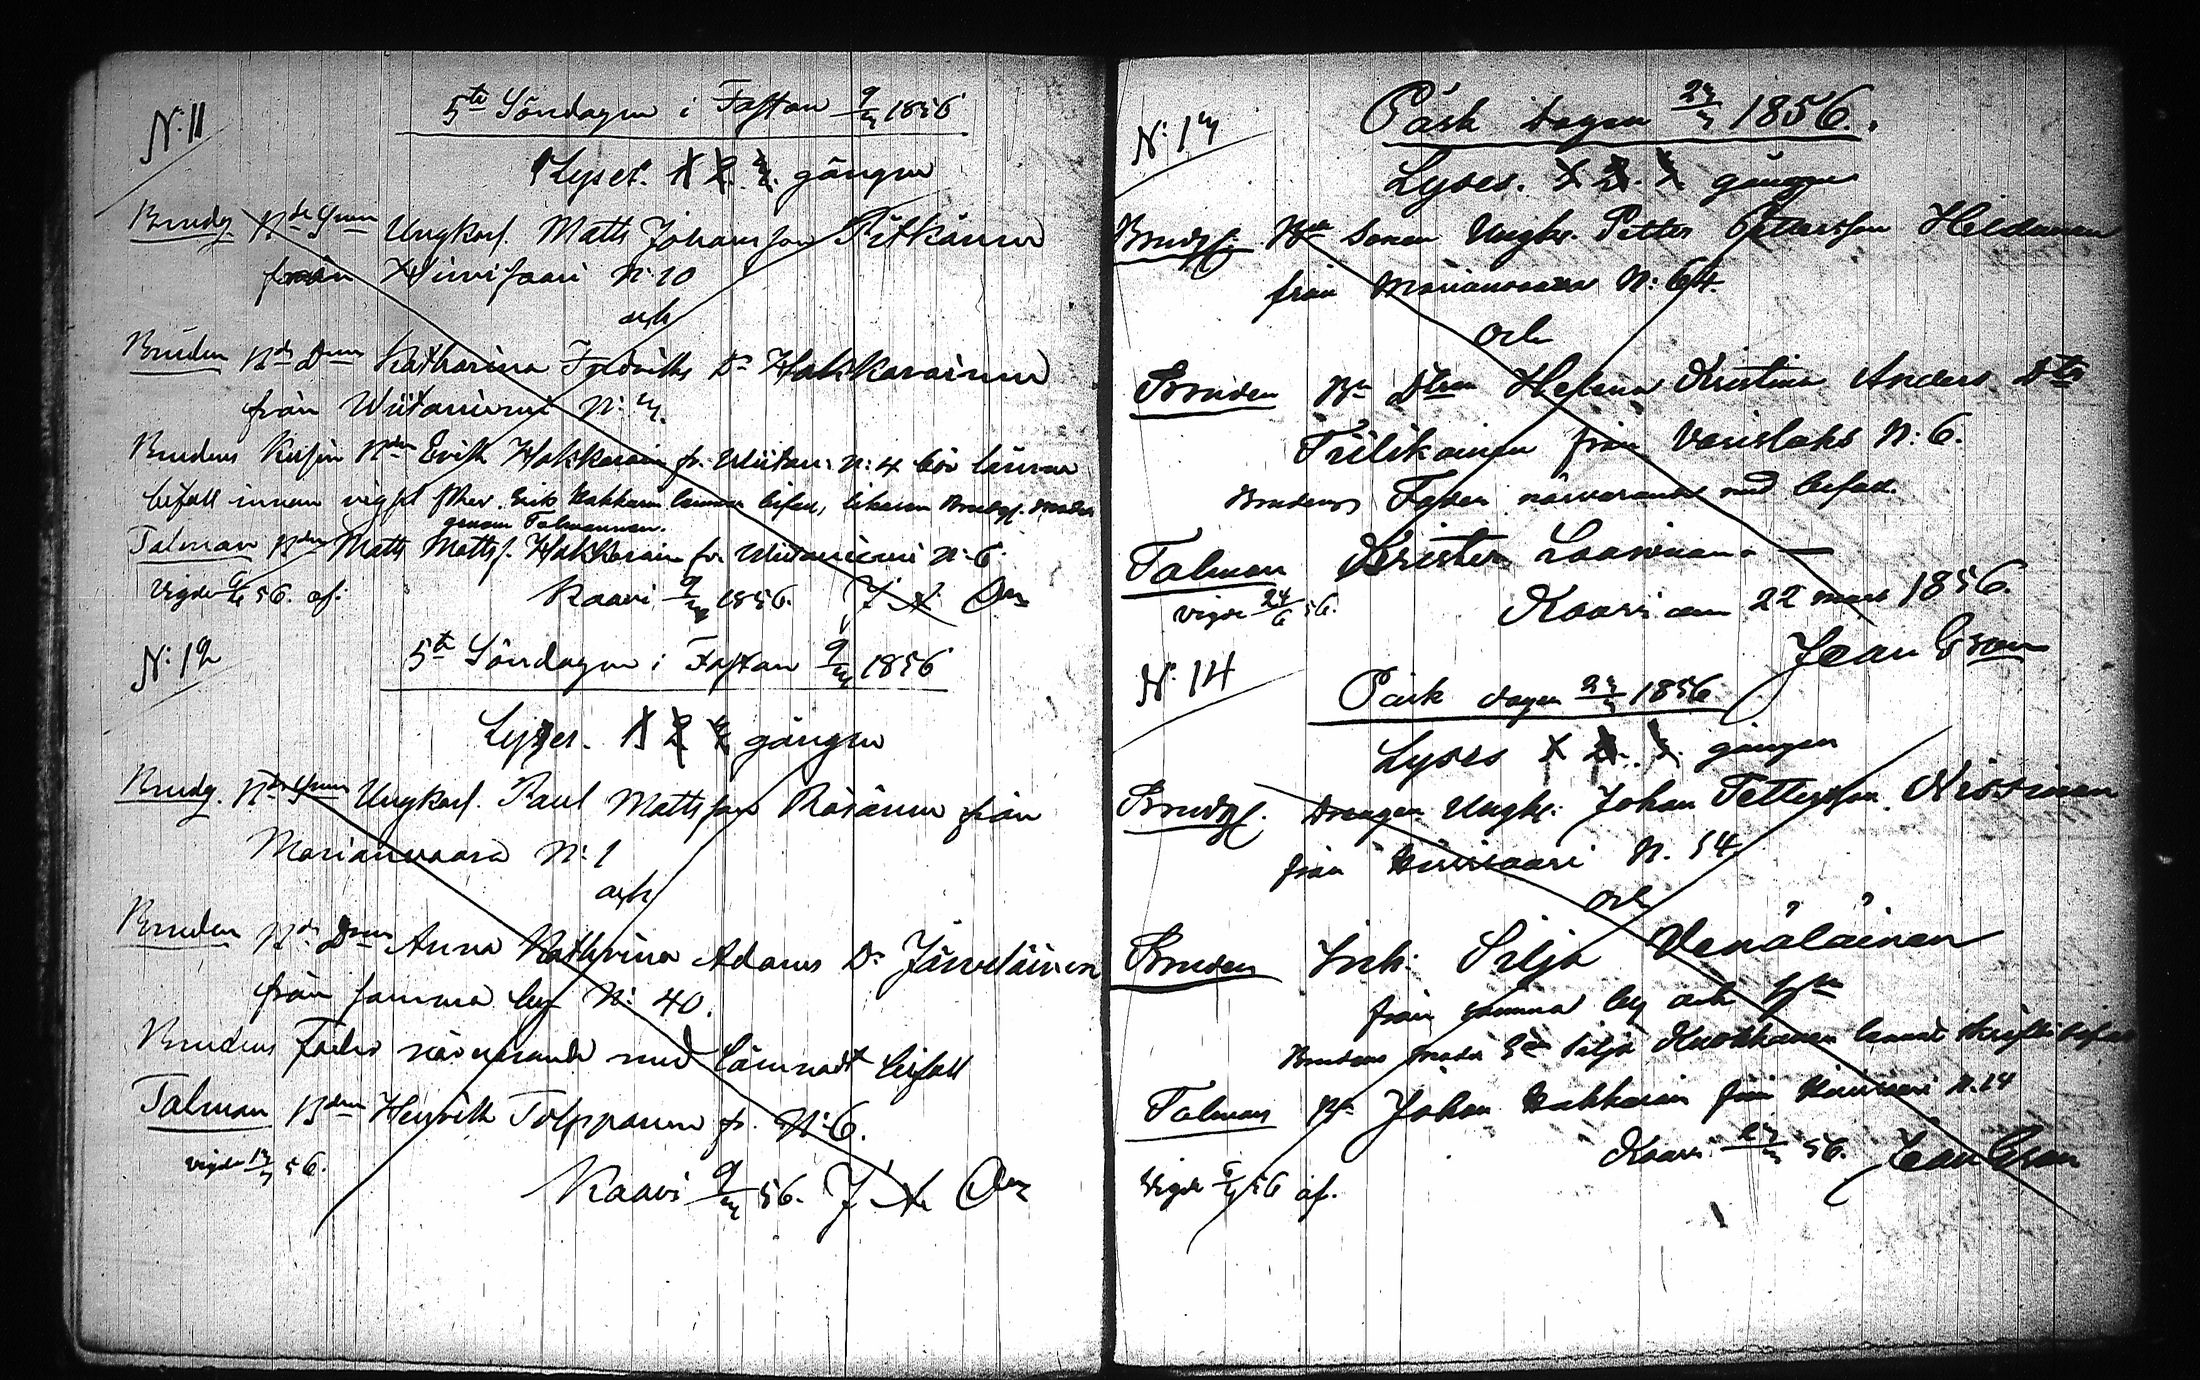 N:11
5te Söndagen i Fastan 9/3 1856
Lyses. 1 2. 3. gången
Brudg. Bde Sonen Ungkarl. Matts Johansson Pitkänen
från Hirvisaari N:10
och
Bruden Bde Dttrn Katharina Fredriks Dr Hakkarainen
från Wiitaniemi N: 3.
Brudens Bde Erik Hakkarain fr. Wiitan: N:4 bör lämna
bifall innan vigsel sker. Erik Hakkarain lemnar bifall, likasom Brudgs. Moder
genom Talmannen.
Talman Bden Matts Mattss. Hakkarain fr Wiitaniemi N:6.
Vigde 56. af.
Kaavi 9/3 1856.
N:12
5te Söndagen i Fastan 9/3 1856
Lyses. 1 2 3 gången
Brudg. Bde Sonen Ungkarl. Paul Mattsson Räsänen från
Marianvaara N:1
och
Bruden Bde Dttrn Anna Kathrina Adams Dr Järveläinen
från samma by N: 40.
Brudens Fader närvarande med lämnadt bifall
Talman Bden Henrik Tolppanen fr. N:6.
vigde 13/3 56.
Kaavi 9/3 56.
N:13
Påsk dagen 23/3 1856.
Lyses. 1 2. 3. gången
Brudg. Bde Sonen Ungkr. Petter Pettersson Heldunen
från Marianvaara N:64.
och
Bruden Bde Dtren Helena Kristina Anders Dtr
Tiilikainen från Varislaks N:6.
Brudens Fader närvarande med bifall.
Talman Krister Laavinan.
vigde 24/6 56.
Kaavi den 22 mars 1856.
Jean Gran
N:14
Påsk dagen 23/3 1856
Lyses 1 2. 3. gången
Brudg. Drengen Ungkr. Johan Pettersson Nissinen
från Hirvisaari N. 14
och
Bruden Inh: Silja Venäläinen
från samma by och
Brudens moder Silja Kuokkanen lemnat skriftl. bifall
Talman Bde Johan Hakkarain från Hirvisaari N.14
Kaavi 23/3 56. Jean Gran
Vigde 56 af.